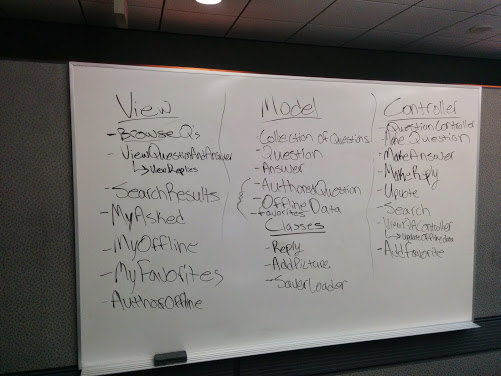 View
- Browse Q's
- ViewQuestionAndAnswer
↳ ViewReplies
- SearchResults
- MyAsked
- MyOffline
- MyFavorites
- AuthorOffline
Model
- Collection of Questions
- Question
- Answer
- AuthoredQuestion
- OfflineData
- Favorites
Classes
- Reply
- AddPicture
- SaverLoader
Controller
- QuestionController
- Make Question
- MakeAnswer
- MakeReply
- Upvote
- Search
↳ UpdateOfflineData
- AddFavorite